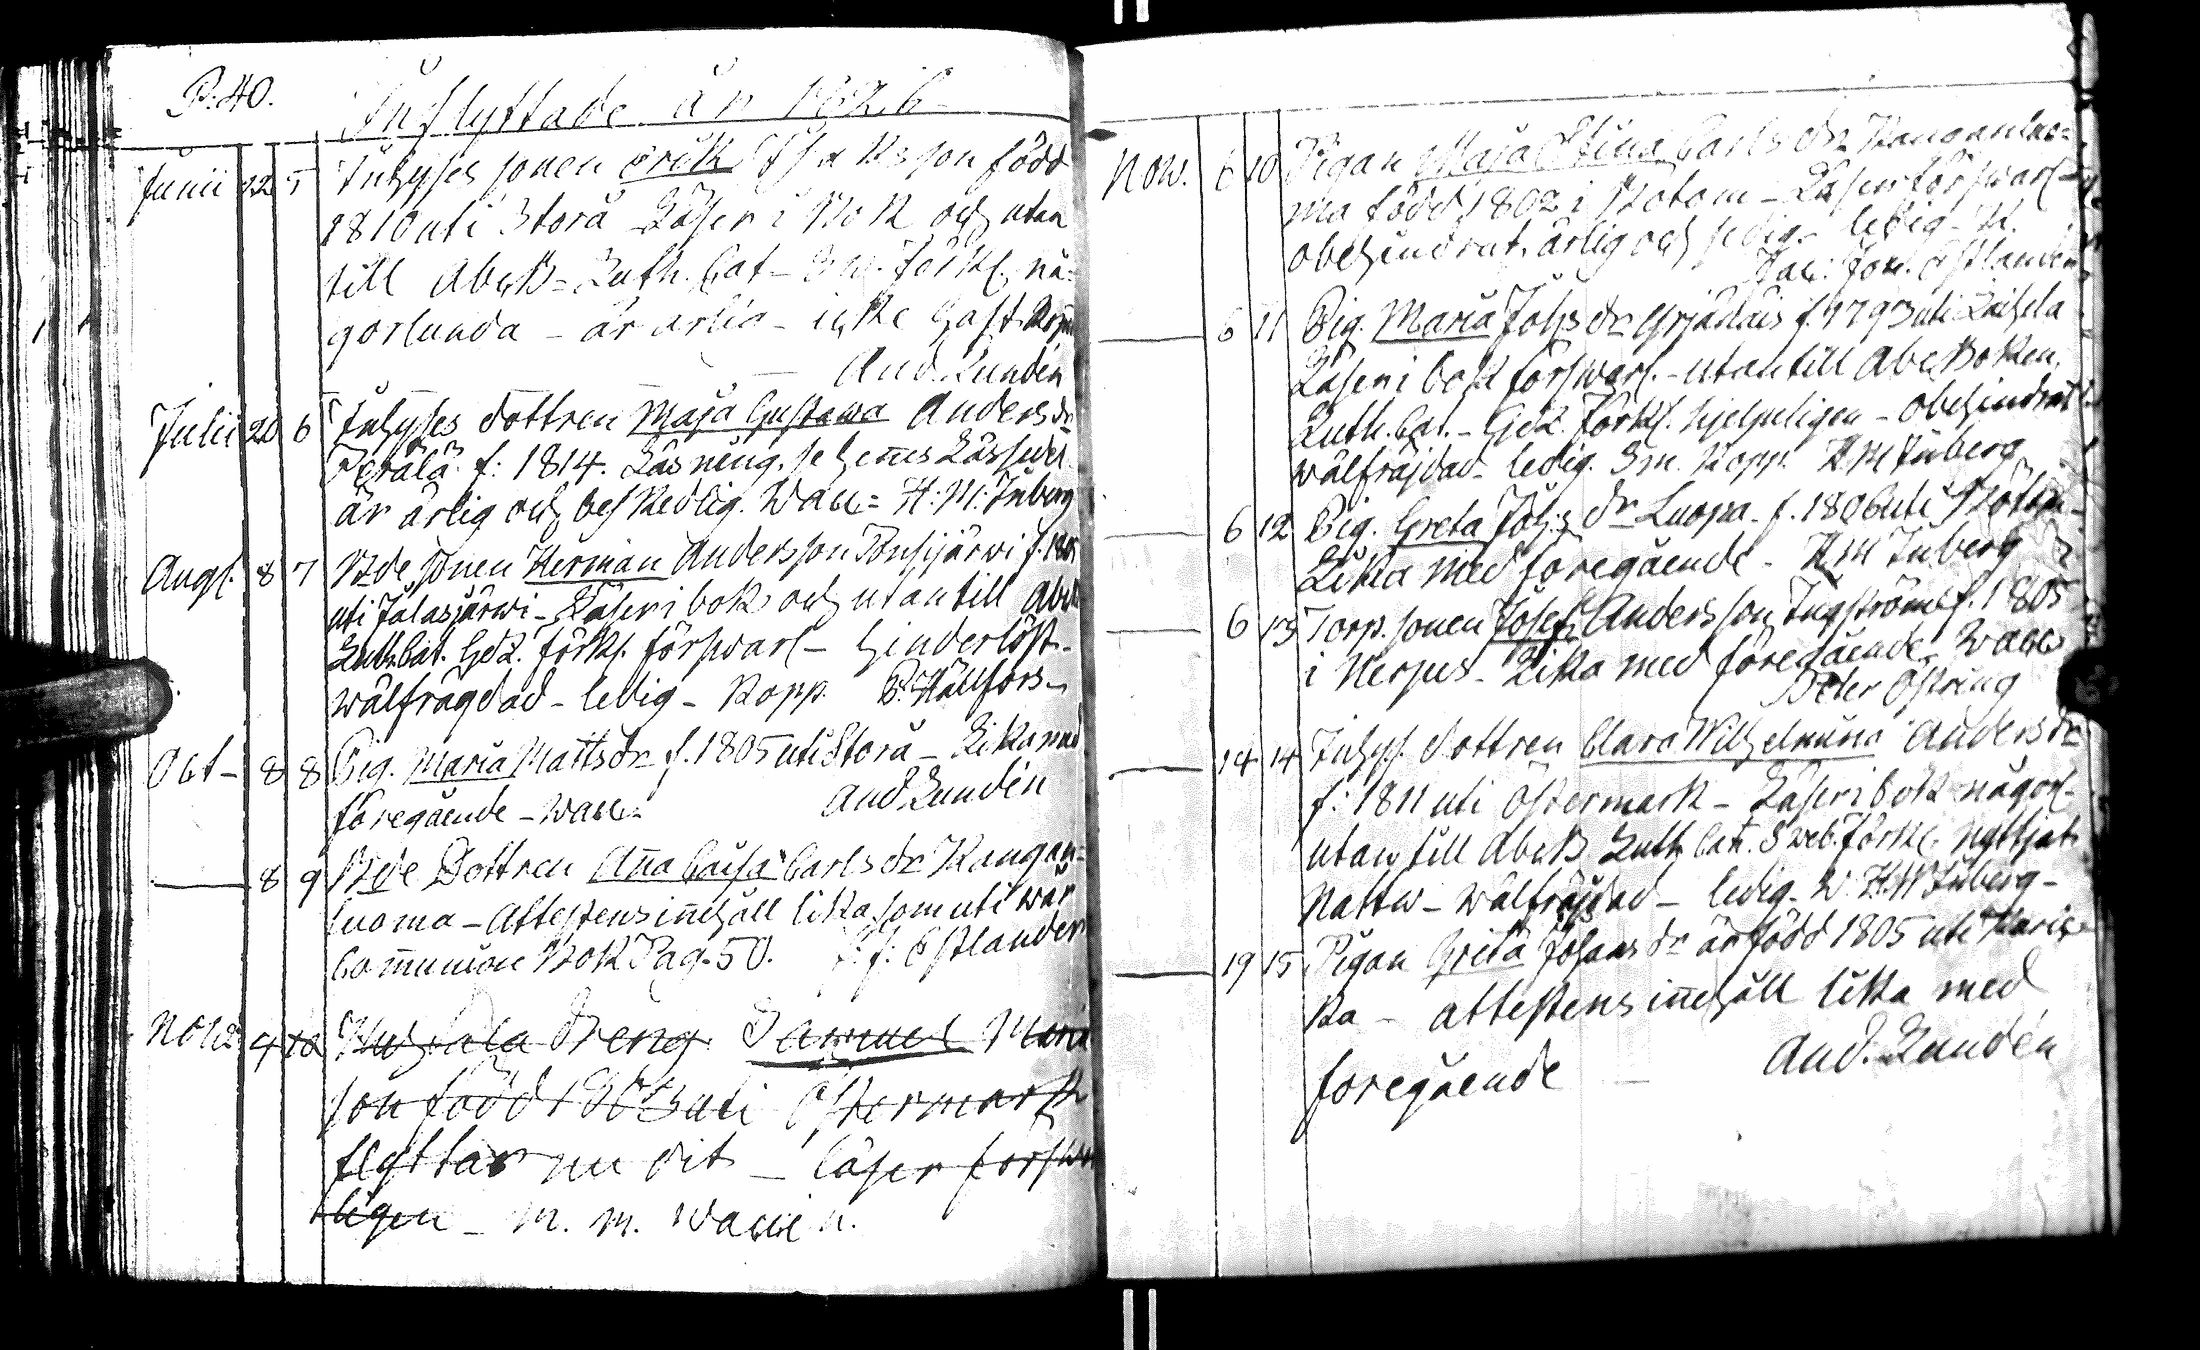 P. 40. Inflyttade år 1826
Junii 12 5 Inhyses sonen Erik Isaksson född
1810 uti Storå Läser i Bok och utan
till AbcB= Luth. Cat- Sw. förkl. nå-
gorlunda - är ärlig - icke haft Kopp
And. Lundén
Julii 20 6 Inhyses dottren Maja Gustawa Anders dr
Perälä f: 1814. Läsning. se hennes Lässedel
är ärlig och beskedlig. Wacc= H: M: Inberg
Aug. 8 7 Bde sonen Herman Andersson f. 1805
uti Jalasjärwi - Läser i bok och utantill Abcb
Luth. Cat. Göz. förkl. förswarl - hinderlöst -
wälfrägdad - ledig - Kopp. P. Hällfors
Oct - 8 8 Pig. Maria Matts dr f. 1805 uti Storå - Lika med
föregående - wacc= And. Lundén
8 9 Bde Dottren Aña Caisa Carls dr Kangan=
luoma - Attestens iñehåll lika som uti wår
Comunion Bok Pag. 50. Estlander
Now 4 10 dreng Samuel
son född 1803 uti Östermark
flyttar nu dit - läser förswar
ligen - m. m. waccin.
Now. 6 10 Pigan Maja Stina Carls dr Kanganluo=
ma född 1802 i Botom - Läser förswarl -
obehindrat. ärlig och sedig - ledig - K.
Jac: Joh. Estlander
6 11 Pig. Maria Johs dr f. 1793 uti Laihela
Läser i bok förswarl. - utantill Abc Boken,
Luth. Cat. - Göz. förkl. hjelpeligen - obehindrad
wälfräjdad - ledig. Sm. Kopp. H M Inberg
6 12 Pig. Greta Johs dr Luopa. f. 1806 uti Botom
Lika med föregående - H M Inberg
6 13 Torp. sonen Josef Andersson Ingström f. 1805
i Nerpes - Lika med föregående - Wacc
Peter Östring
14 14 Inhys. dottren Clara Wilhelmina Anders dr
f: 1811 uti Östermark - Läser i bok någorl -
utantill AbcB Luth Cat. Sweb. förkl. Nyttjat
Nattw - wälfräjdad - ledig - W. H. M Inberg -
19 15 Pigan Greta Johans dr är född 1805 uti
ka - attestens iñehåll lika med
föregående - And. Lundén